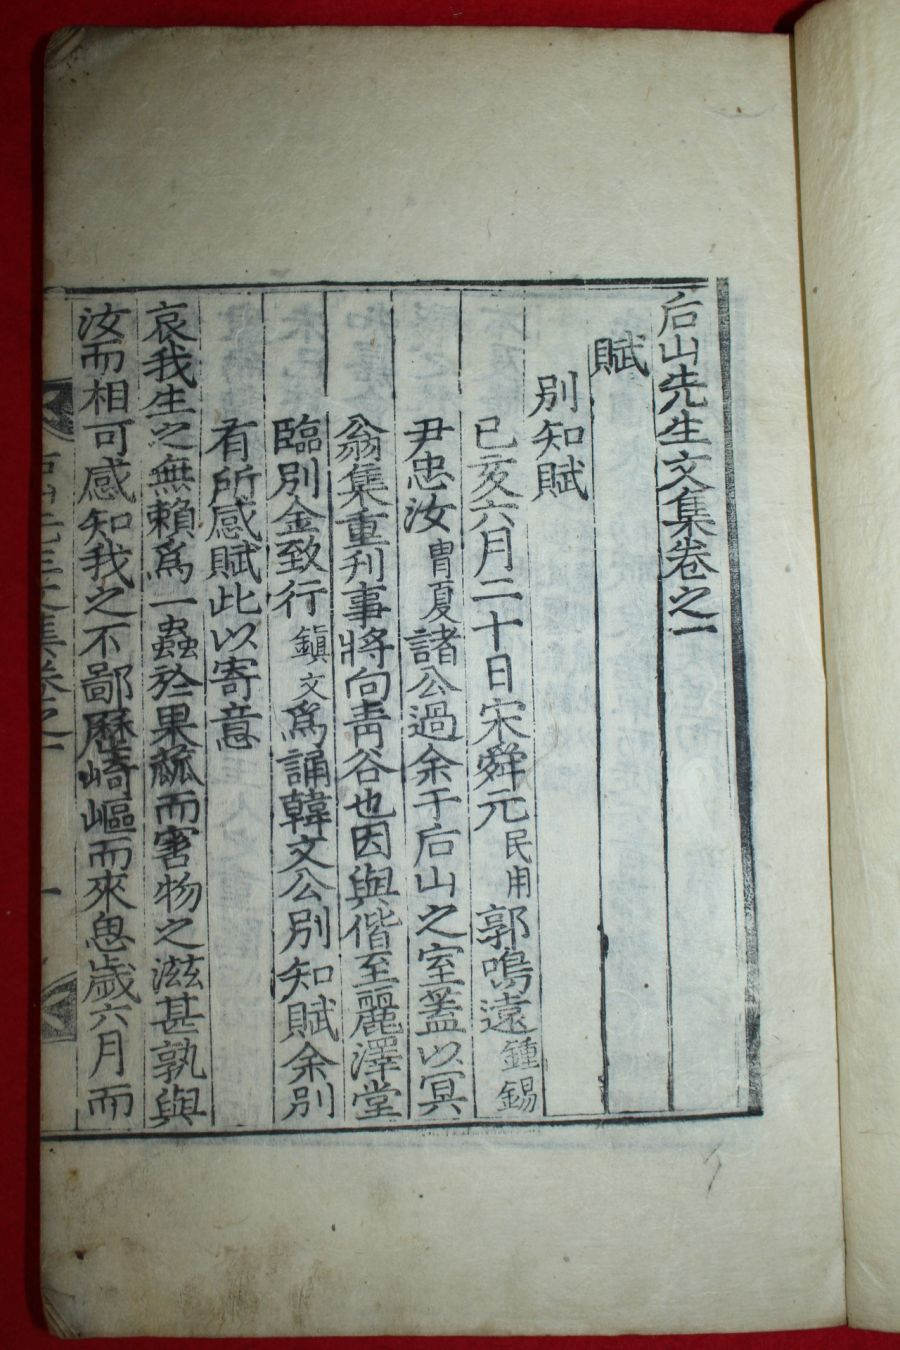 后山先生文集卷之一
賦
別知賦
已亥六月二十日宋舜元民用郭鳴遠鍾錫
尹忠汝冑夏諸公過余于后山之室蓋以冥
翁集重刊事將向靑谷也因與偕至麗澤堂
臨別金致行鎭文爲誦韓文公別知賦余別
有所感賦此以寄意
哀我生之無賴爲一蟲於果蓏而害物之滋甚孰與
汝而相可感知我之不鄙歷崎嶇而來思歲六月而
后山先生文集卷之一
一